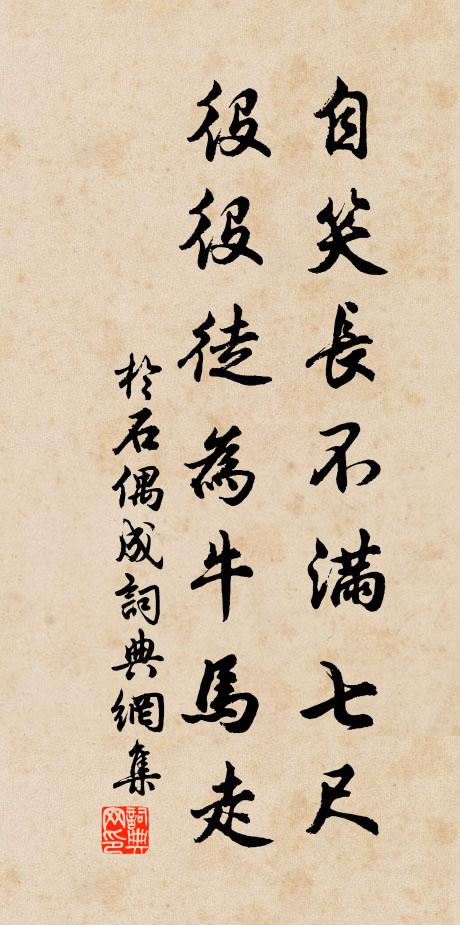 自笑長不滿七尺
役役徒為牛馬走
於石偶成詞典網集
詞典
网印